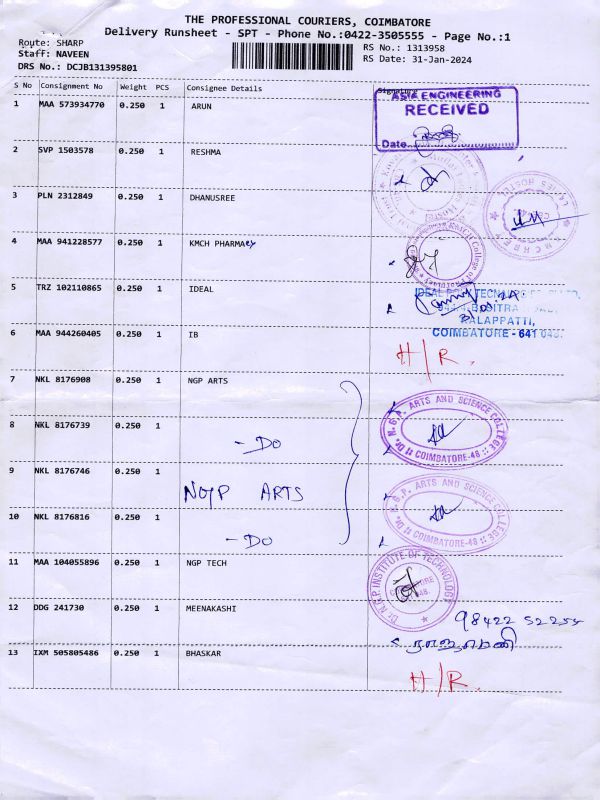 THE PROFESSIONAL COURIERS, COIMBATORE
Delivery Runsheet - SPT - Phone No.:0422-3505555 - Page No.:1
Route: SHARP
Staff: NAVEEN
DRS No.: DCJB131395801
RS No.: 1313958
RS Date: 31-Jan-2024
S No Consignment No Weight PCS Consignee Details Signature
1 MAA 573934770 0.250 1 ARUN
ASIA ENGINEERING
RECEIVED
Date
2 SVP 1503578 0.250 1 RESHMA
3 PLN 2312849 0.250 1 DHANUSREE
LADIES HOSTEL
4 MAA 941228577 0.250 1 KMCH PHARMAcy
KMCH College of Pharmacy
5 TRZ 102110865 0.250 1 IDEAL
KALAPPATTI,
COIMBATORE - 641 048.
6 MAA 944260405 0.250 1 IB
H/R.
7 NKL 8176908 0.250 1 NGP ARTS
Dr. N.G.P. ARTS AND SCIENCE COLLEGE
COIMBATORE-48
8 NKL 8176739 0.250 1
- DO
9 NKL 8176746 0.250 1
NGP ARTS
Dr. N.G.P. ARTS AND SCIENCE COLLEGE
COIMBATORE-48
10 NKL 8176816 0.250 1
- DO
11 MAA 104055896 0.250 1 NGP TECH
Dr. N.G.P. INSTITUTE OF TECHNOLOGY
COIMBATORE
12 DDG 241730 0.250 1 MEENAKASHI
98422 52255
13 IXM 505805486 0.250 1 BHASKAR
H/R.